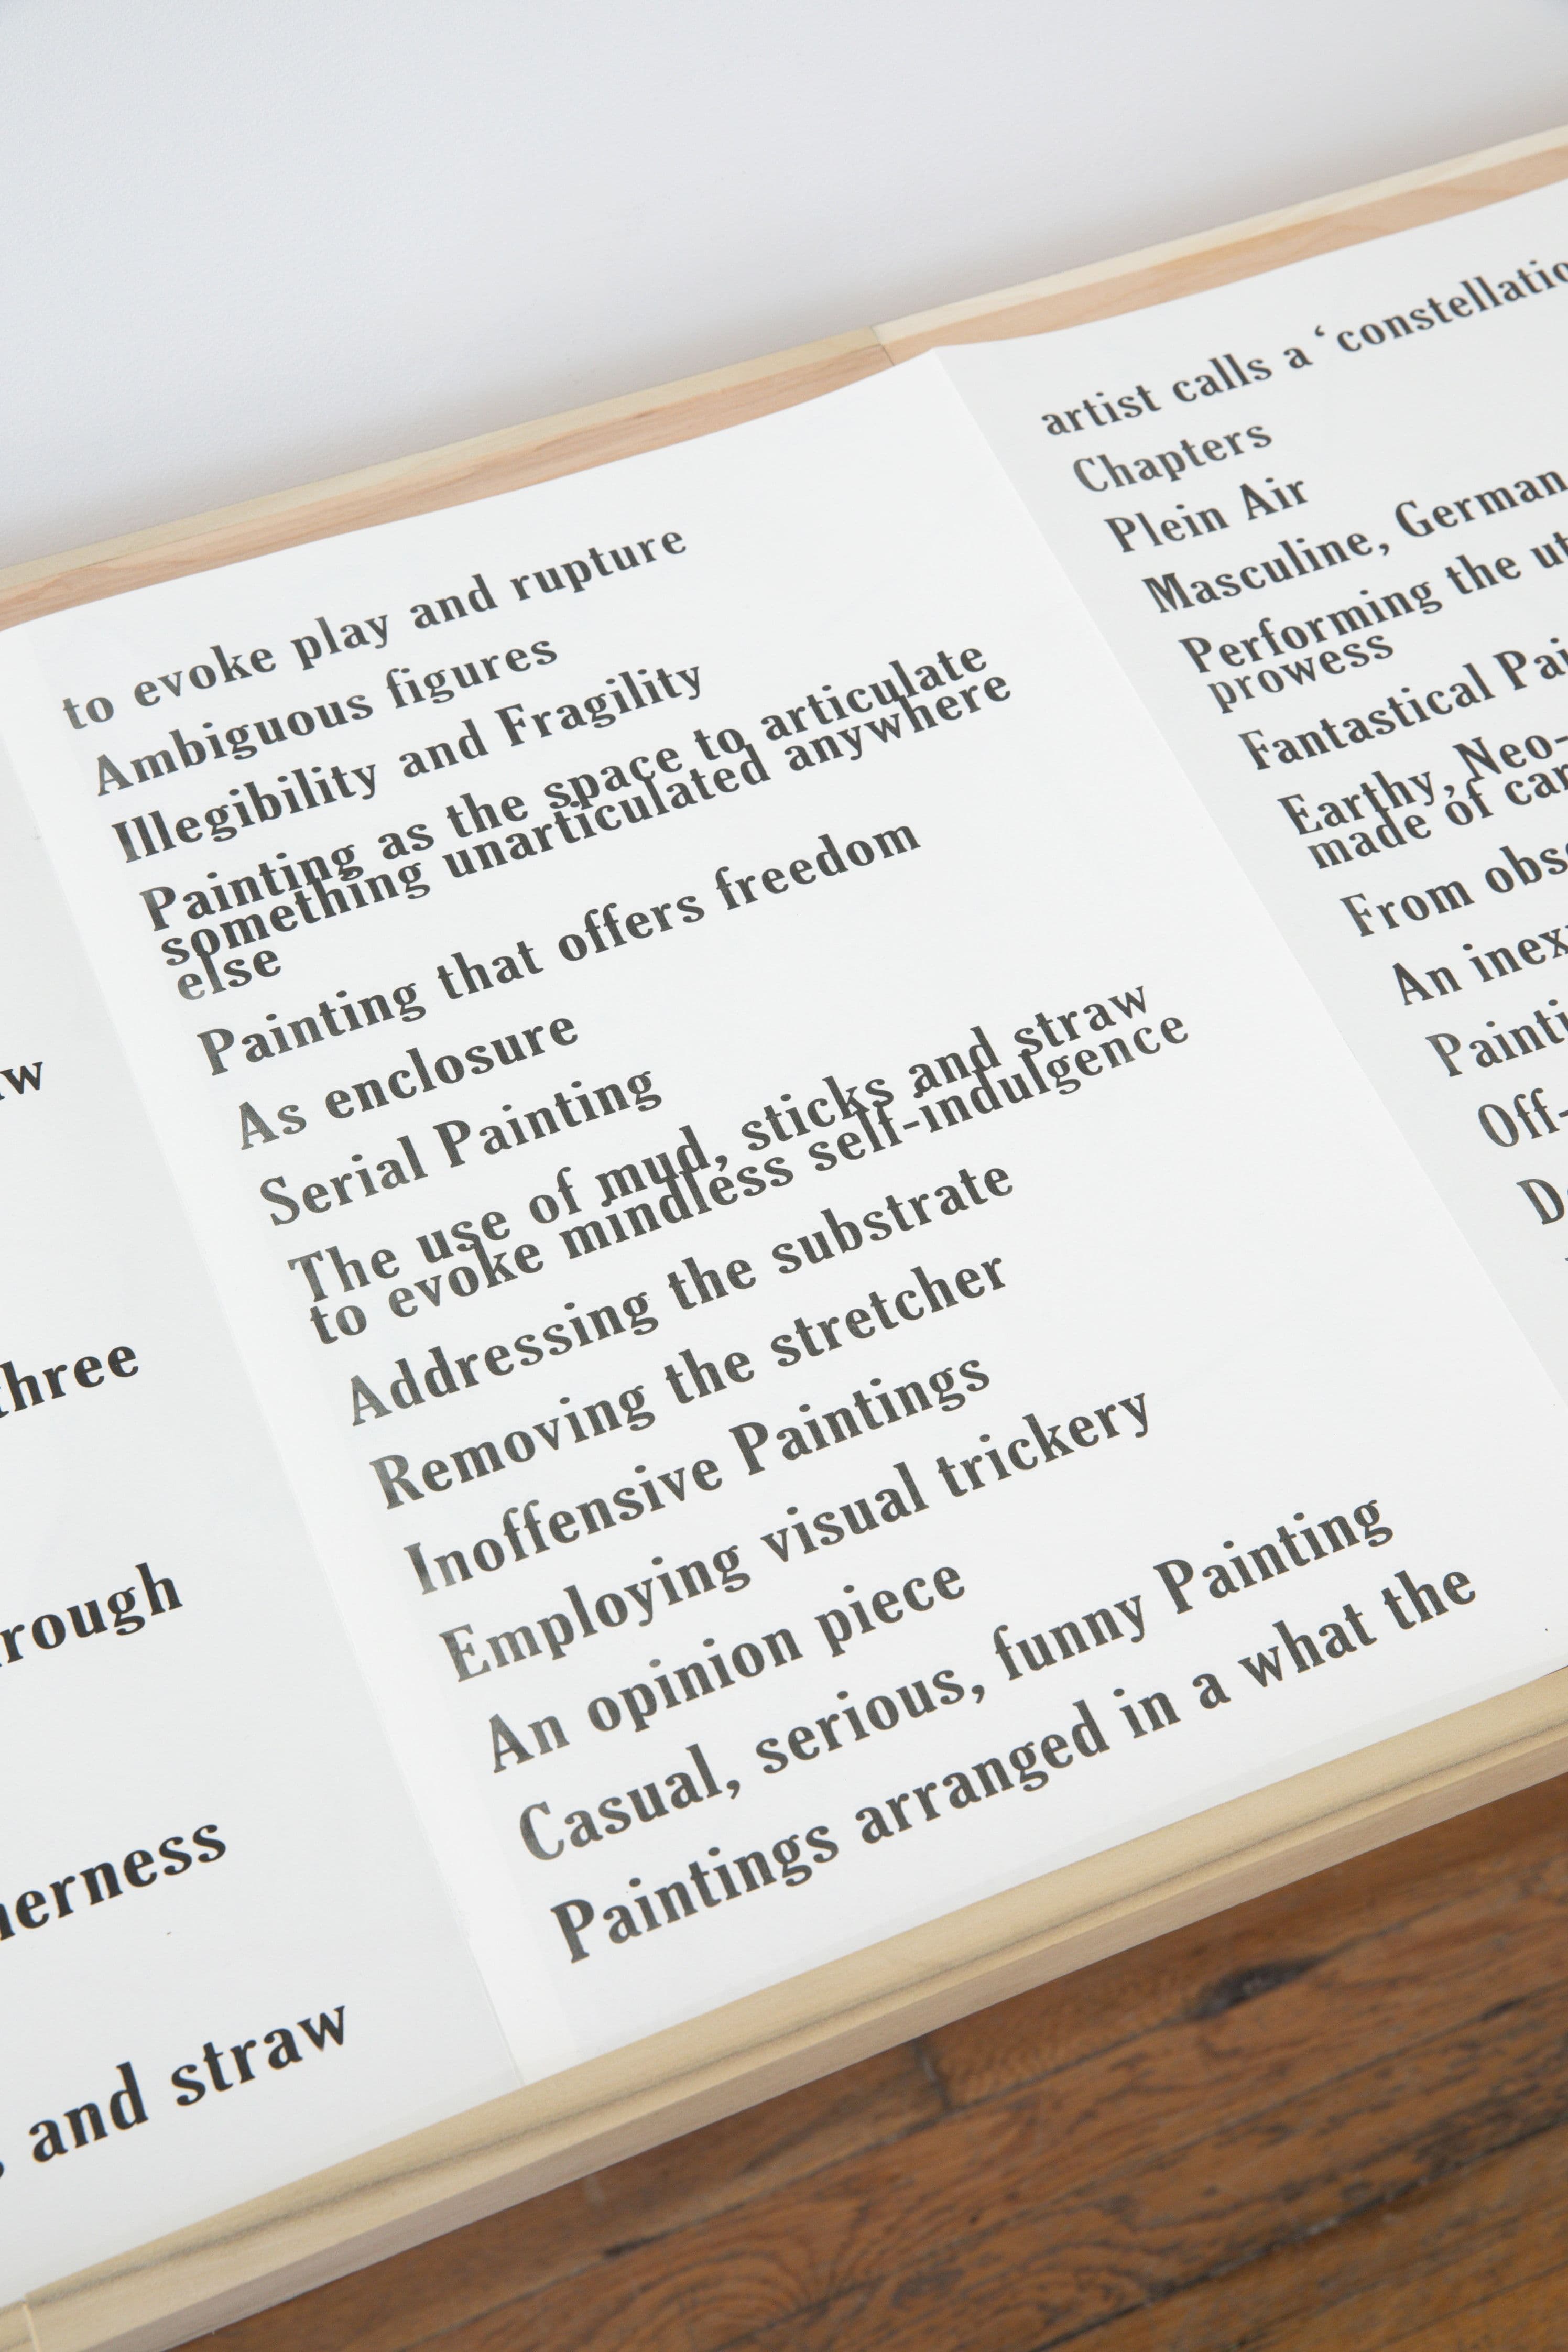 three
and straw
to evoke play and rupture
Ambiguous figures
Illegibility and Fragility
Painting as the space to articulate
something unarticulated anywhere
else
Painting that offers freedom
As enclosure
Serial Painting
The use of mud, sticks and straw
to evoke mindless self-indulgence
Addressing the substrate
Removing the stretcher
Inoffensive Paintings
Employing visual trickery
An opinion piece
Casual, serious, funny Painting
Paintings arranged in a what the
artist calls a ‘constellatio
Chapters
Plein Air
Masculine, German
Performing the ut
prowess
Fantastical Pai
Earthy, Neo-
made of car
From obs
An inex
Painti
Off-